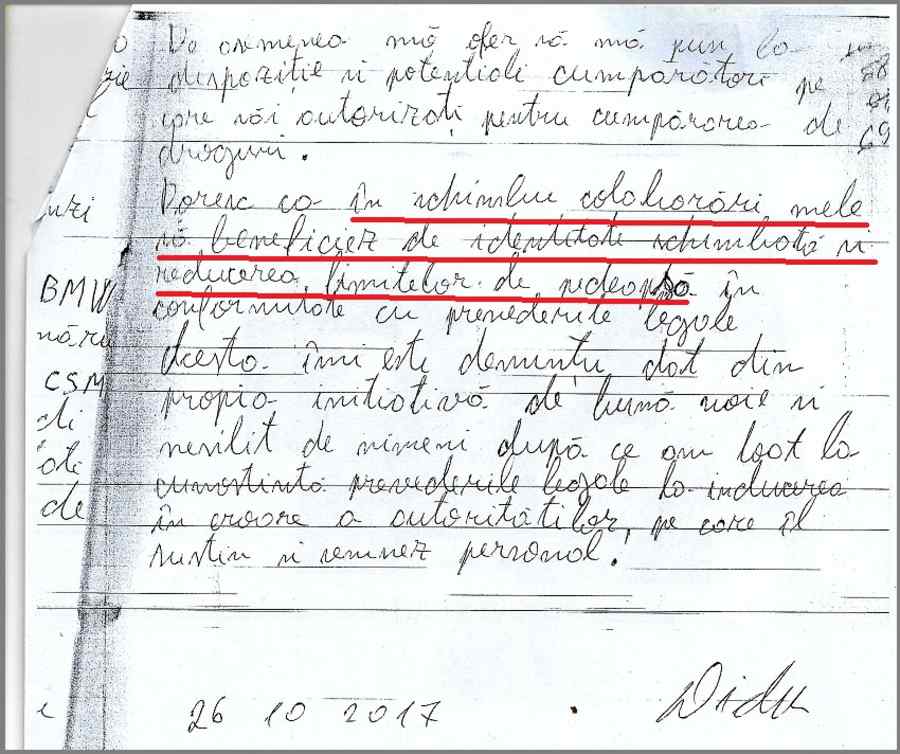 De asmenea mă ofer să mă pun la
dispoziție și potențiali cumpărători pe
care văi autorizați pentru cumpărarea de
droguri.
Doresc ca în schimbu colaborări mele
să beneficiez de identitate schimbată și
reducerea limitelor de pedeapsă în
conformitate cu prevederile legale
Acesta îmi este denunțu dat din
propia inițiativă de bună voie și
nesilit de nimeni după ce am luat la
cunostintă prevederile legale la inducerea
în eroare a autoritătilor, pe care îl
sustin și semnez personal.
uzi
BMW
CSM
de
69
26 10 2017